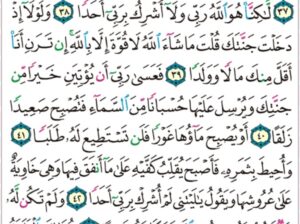 ﴿٣٧﴾ لَّٰكِنَّا۠ هُوَ ٱللَّهُ رَبِّى وَلَآ أُشْرِكُ بِرَبِّىٓ أَحَدًا ﴿٣٨﴾ وَلَوْلَآ إِذْ
دَخَلْتَ جَنَّتَكَ قُلْتَ مَا شَآءَ ٱللَّهُ لَا قُوَّةَ إِلَّا بِٱللَّهِ إِن تَرَنِ أَنَا۠
أَقَلَّ مِنكَ مَالًا وَوَلَدًا ﴿٣٩﴾ فَعَسَىٰ رَبِّىٓ أَن يُؤْتِيَنِ خَيْرًا مِّن
جَنَّتِكَ وَيُرْسِلَ عَلَيْهَا حُسْبَانًا مِّنَ ٱلسَّمَآءِ فَتُصْبِحَ صَعِيدًا
زَلَقًا ﴿٤٠﴾ أَوْ يُصْبِحَ مَآؤُهَا غَوْرًا فَلَن تَسْتَطِيعَ لَهُۥ طَلَبًا ﴿٤١﴾
وَأُحِيطَ بِثَمَرِهِۦ فَأَصْبَحَ يُقَلِّبُ كَفَّيْهِ عَلَىٰ مَآ أَنفَقَ فِيهَا وَهِىَ خَاوِيَةٌ
عَلَىٰ عُرُوشِهَا وَيَقُولُ يَٰلَيْتَنِى لَمْ أُشْرِكْ بِرَبِّىٓ أَحَدًا ﴿٤٢﴾ وَلَمْ تَكُن لَّهُۥ